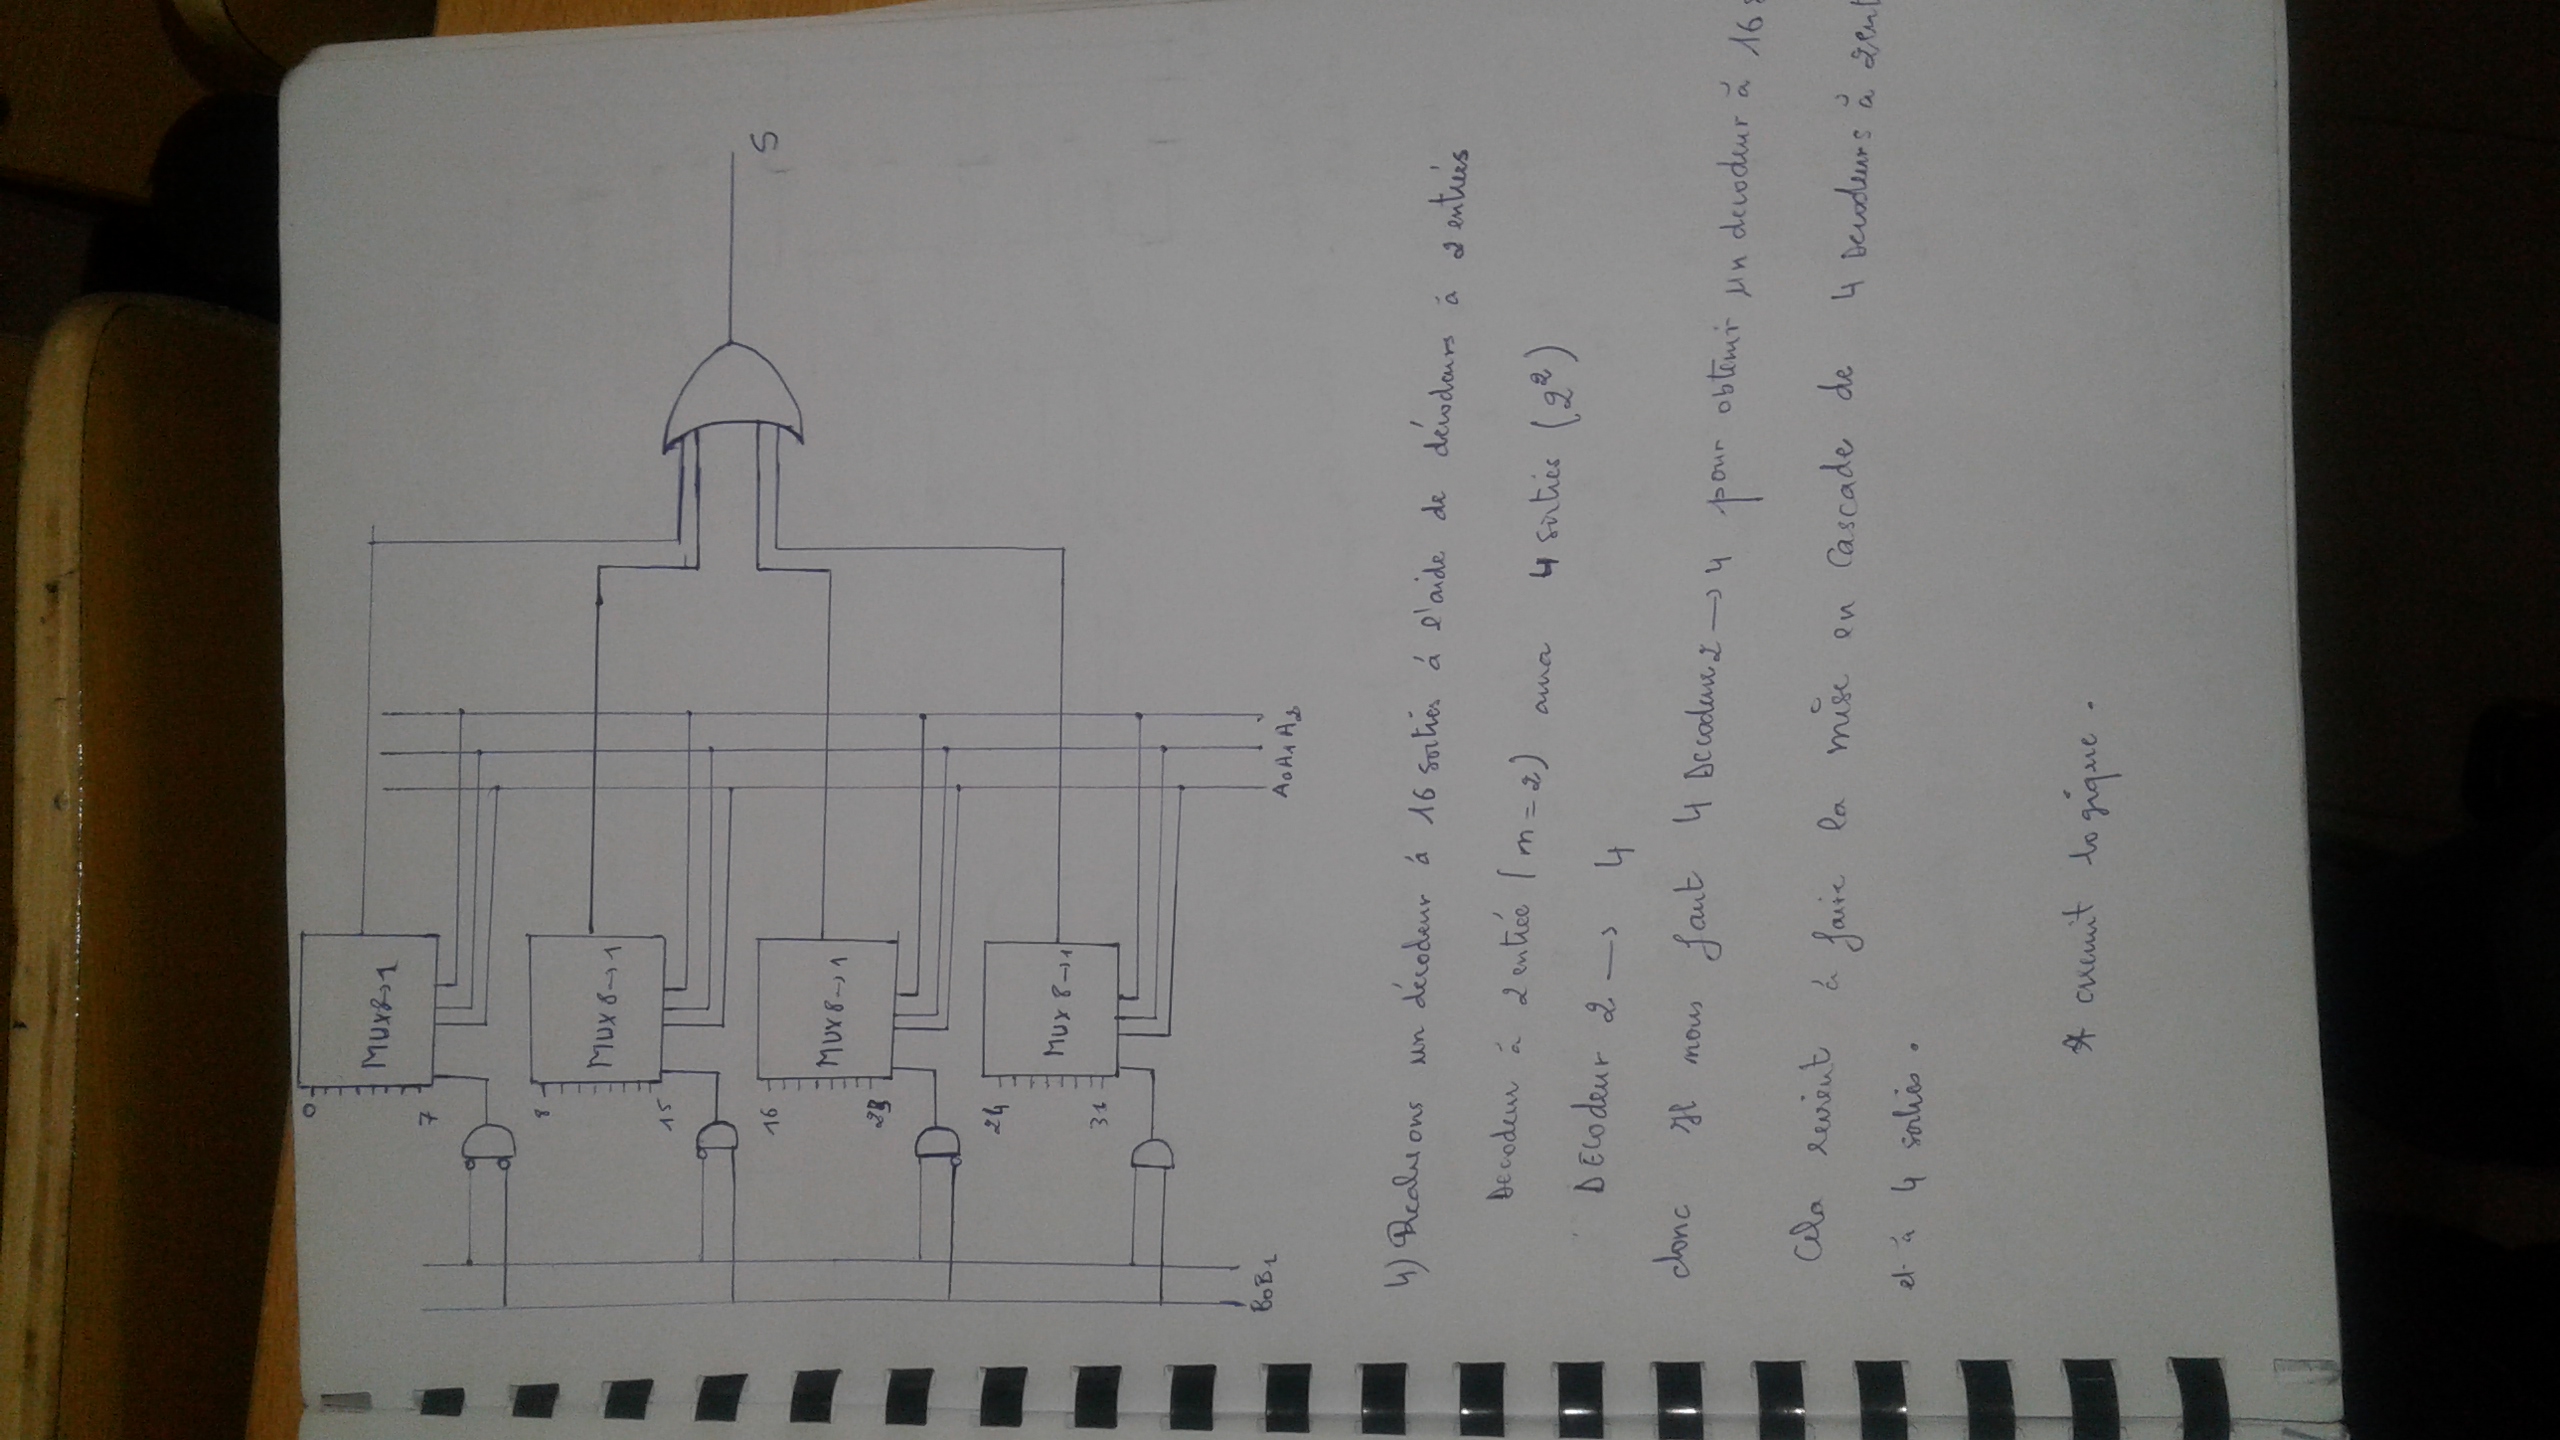 0
MUX8→1
7
8
MUX8→1
15
16
MUX8→1
S
23
24
MUX8→1
31
B0B1
A0A1A2
4) Realisons un décodeur à 16 sorties à l'aide de décodeurs à 2 entrées
Decodeur à 2 entrée (n=2) aura 4 sorties (2²)
DEcodeur 2 → 4
donc Il nous faut 4 Decodeur 2 → 4 pour obtenir un decodeur à 16
Cela revient à faire la mise en cascade de 4 Decodeurs à 2 ent
et à 4 sorties.
* circuit logique.